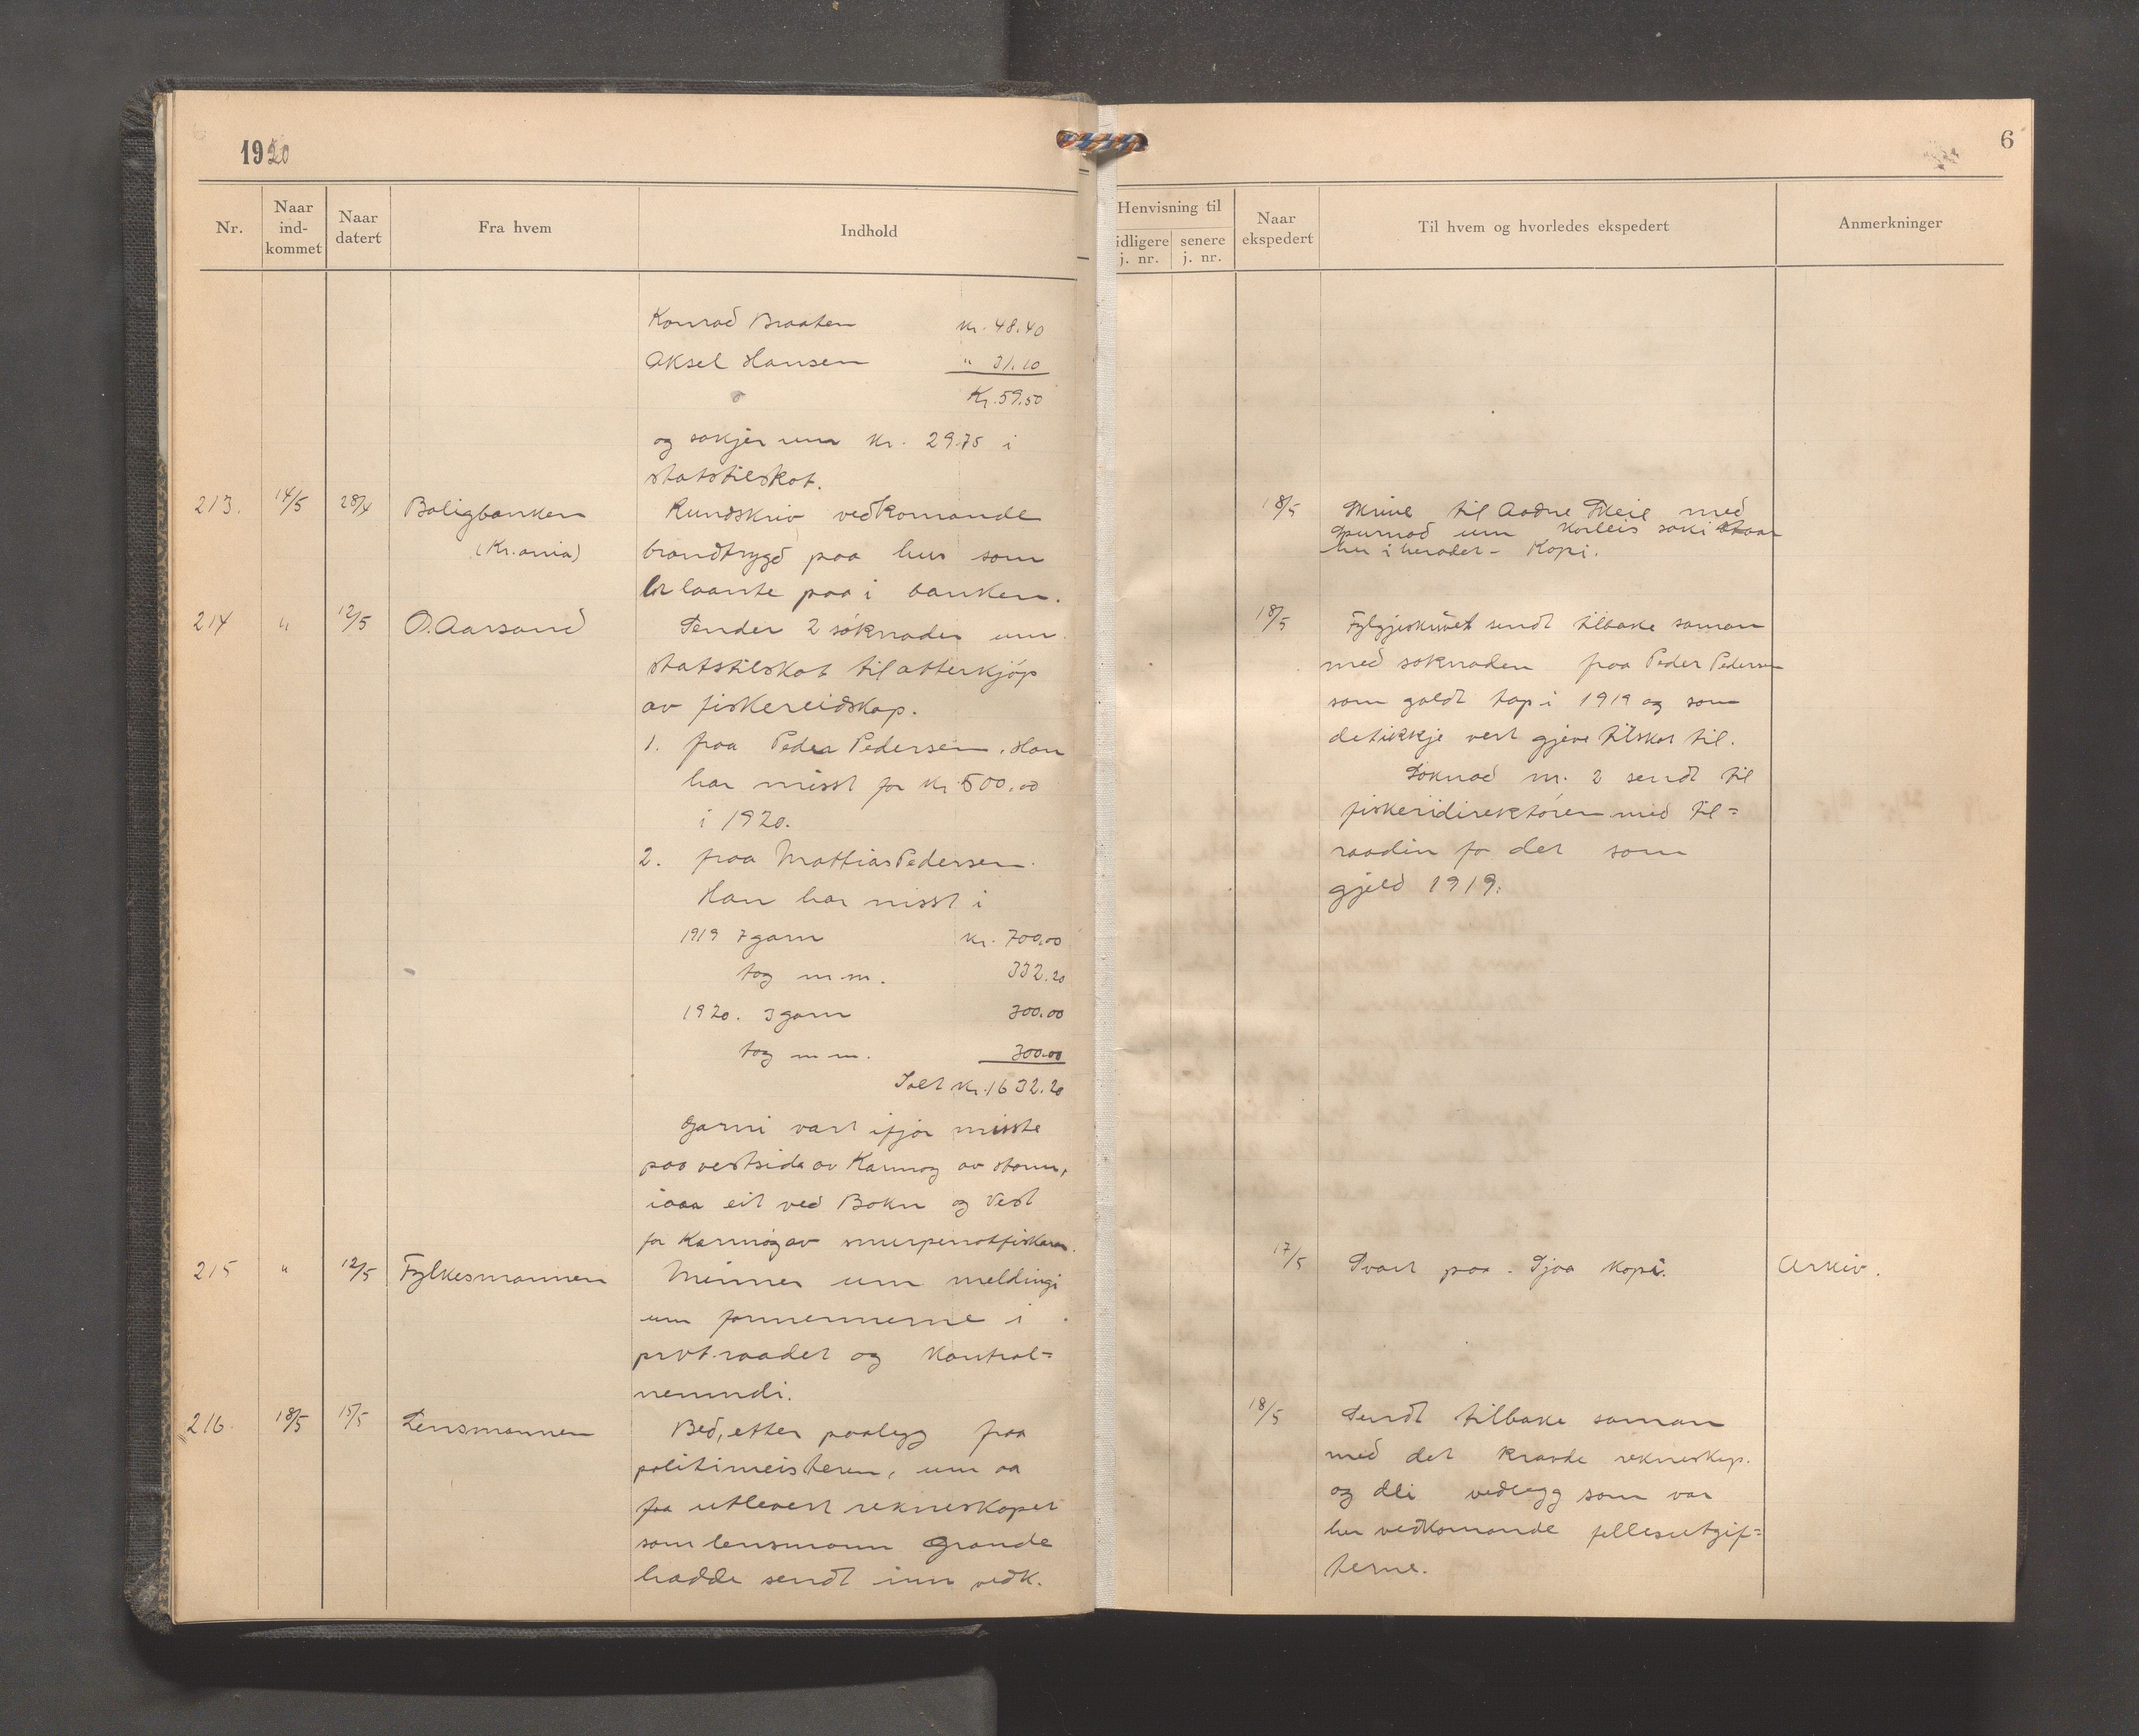 1920
Nr.
Naar
ind-
kommet
Naar
datert
Fra hvem
Indhold
Konrad Braaten kr. 48.40
Aksel Hansen " 31.10
Kr. 59.50
og søkjer um kr. 29.75 i
statstilskot.
213. 14/5 28/4 Boligbanken Rundskriv vedkomande
(Kr.ania) brandtrygd paa hus som
er laante paa i banken.
214 " 12/5 O. Aarsand Sender 2 søknader um
statstilskot til atterkjøp
av fiskereidskap.
1. fraa Peder Pedersen. Han
har misst for kr. 500.00
i 1920.
2. fraa Mattias Pedersen.
Han har misst i
1919 7 garn kr. 700.00
tog m.m. 332.20
1920. 3 garn 300.00
tog m.m. 300.00
Ialt kr. 1632.20
Garni vart ifjor misste
paa vestsida av Karmøy av storm,
iaar eit ved Bokn og vest
for Karmøy av snurpenotfiskarar.
215 " 12/5 Fylkesmannen Minner um meldingi
um formennerne i
prvt.raadet og kontrol=
nemndi.
216. 18/5 15/5 Lensmannen Bed, etter paalegg fraa
politimeisteren, um aa
faa utlevert rekneskapet
som lensmann Grande
hadde sendt inn vedk.
6
Henvisning til
idligere
j. nr.
senere
j. nr.
Naar
ekspedert
Til hvem og hvorledes ekspedert
Anmerkninger
18/5 Skrive til Aadne Skeie med
spurnad um korleis saki staar
her i heradet - Kopi.
18/5 Fylgjeskrivet sendt tilbake saman
med søknaden fraa Peder Pedersen
som galdt tap i 1919 og som
det ikkje vert gjeve tilskot til.
Søknad nr. 2 sendt til
fiskeridirektøren med til=
raading for det som
gjeld 1919.
17/5 Svart paa. Sjaa kopi. Arkiv.
18/5 Sendt tilbake saman
med det kravde rekneskap.
og dei vedlegg som var
her vedkomande fellesutgif=
terne.